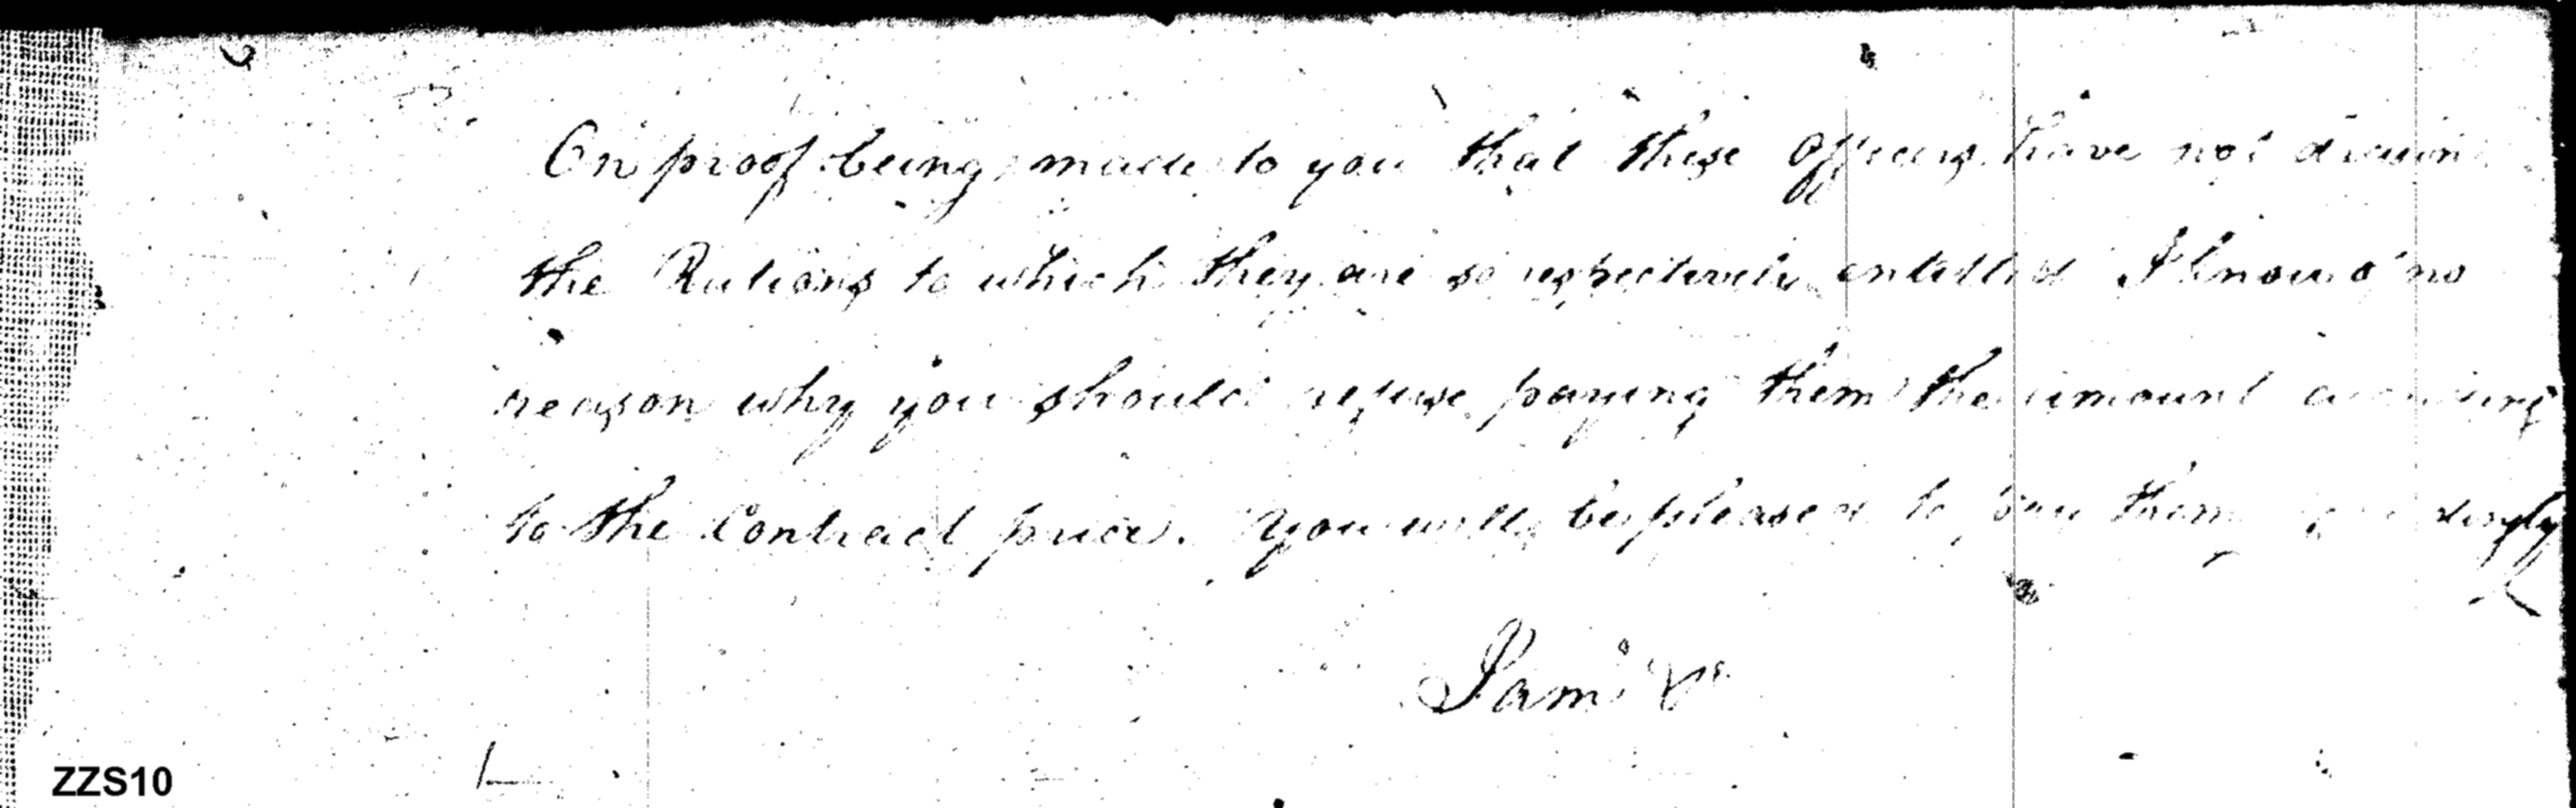 On proof being made to you that these Officers have not drawn
the Rations to which they are so respectively entitled I know o' no
reason why you should refuse paying them the amount according
to the Contract price. You will be pleased to pay them accordingly
I am &c
ZZS10